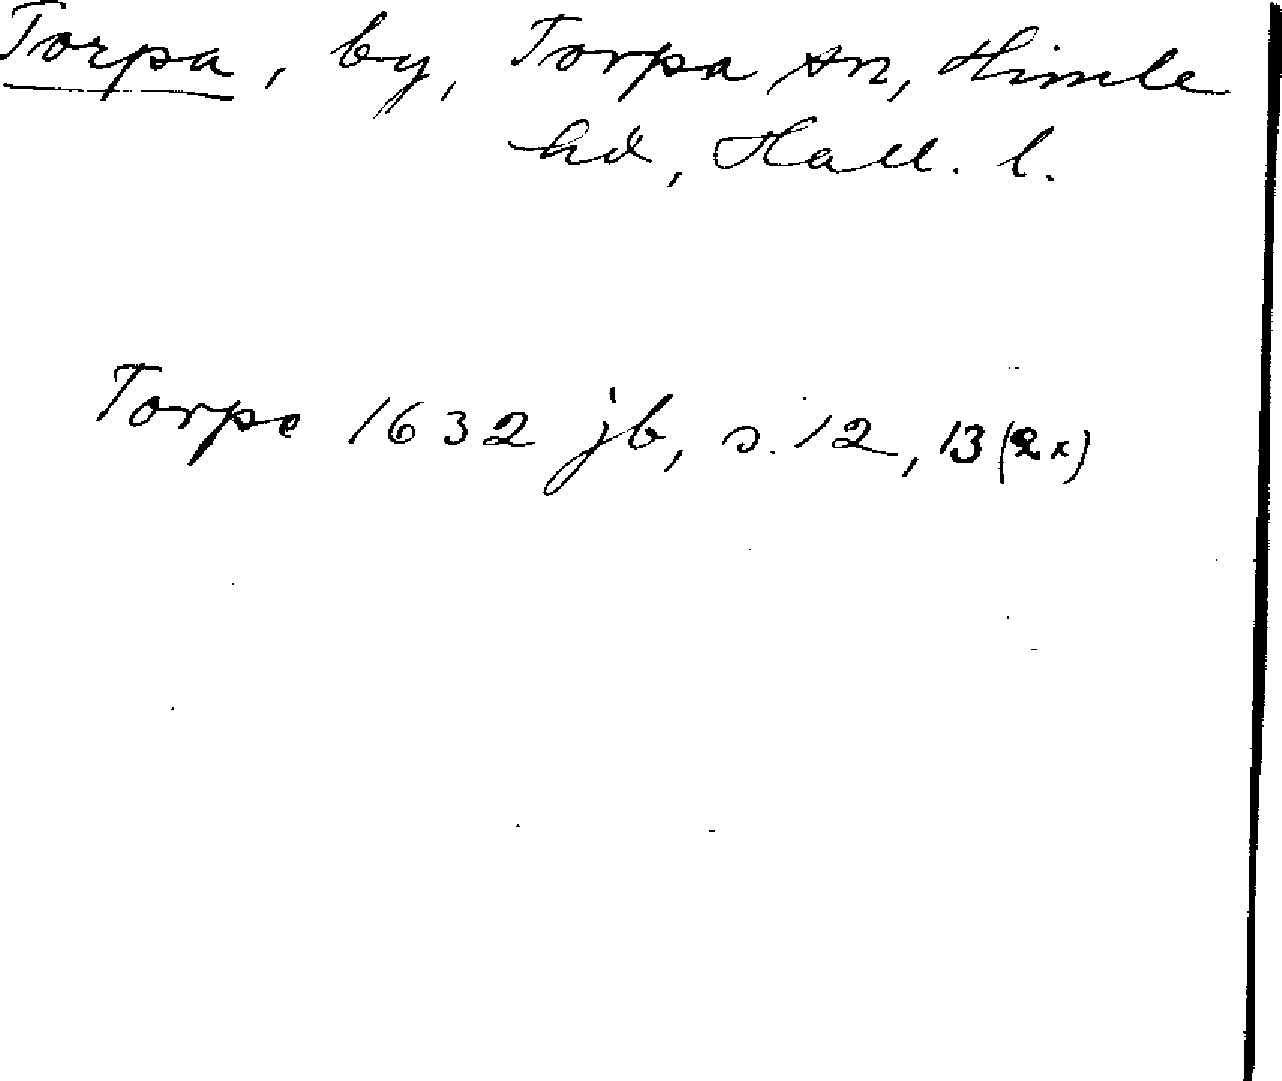 Torpa, by, Torpa sn, Himle
hd, Hall. l.
Torpe 1632 jb, s. 12, 13 (2x)